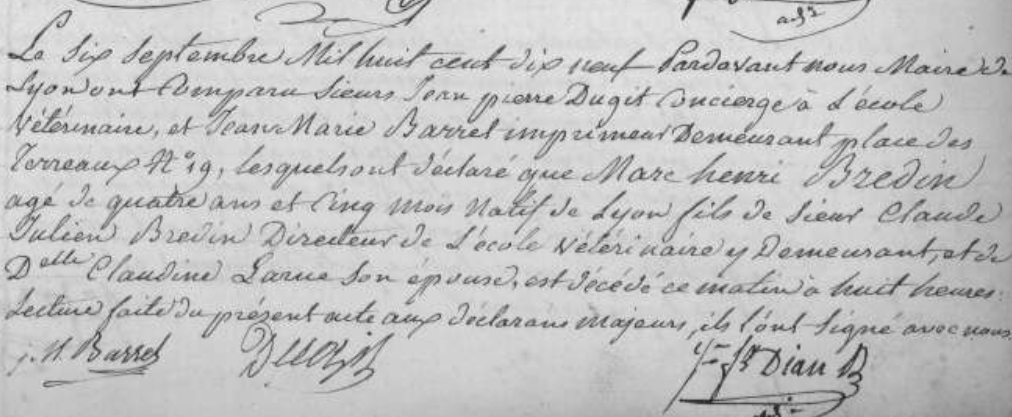 Le six septembre Mil huit cent dix neuf Pardavant nous Maire de
Lyon ont Comparu Sieurs Jean pierre Dugit Concierge à L'école
Vétérinaire, et Jean Marie Barret imprimeur Demeurant place des
Terreaux N° 19, lesquels ont déclaré que Marc henri Bredin
agé de quatre ans et Cinq mois Natif de Lyon fils de Sieur Claude
Julien Bredin Directeur de L'école vétérinaire y Demeurant, et de
Delle Claudine Larue Son épouse, est décédé ce matin à huit heures.
Lecture faite du présent acte aux déclarans majeurs, ils l'ont Signé avec nous.
J. M. Barret